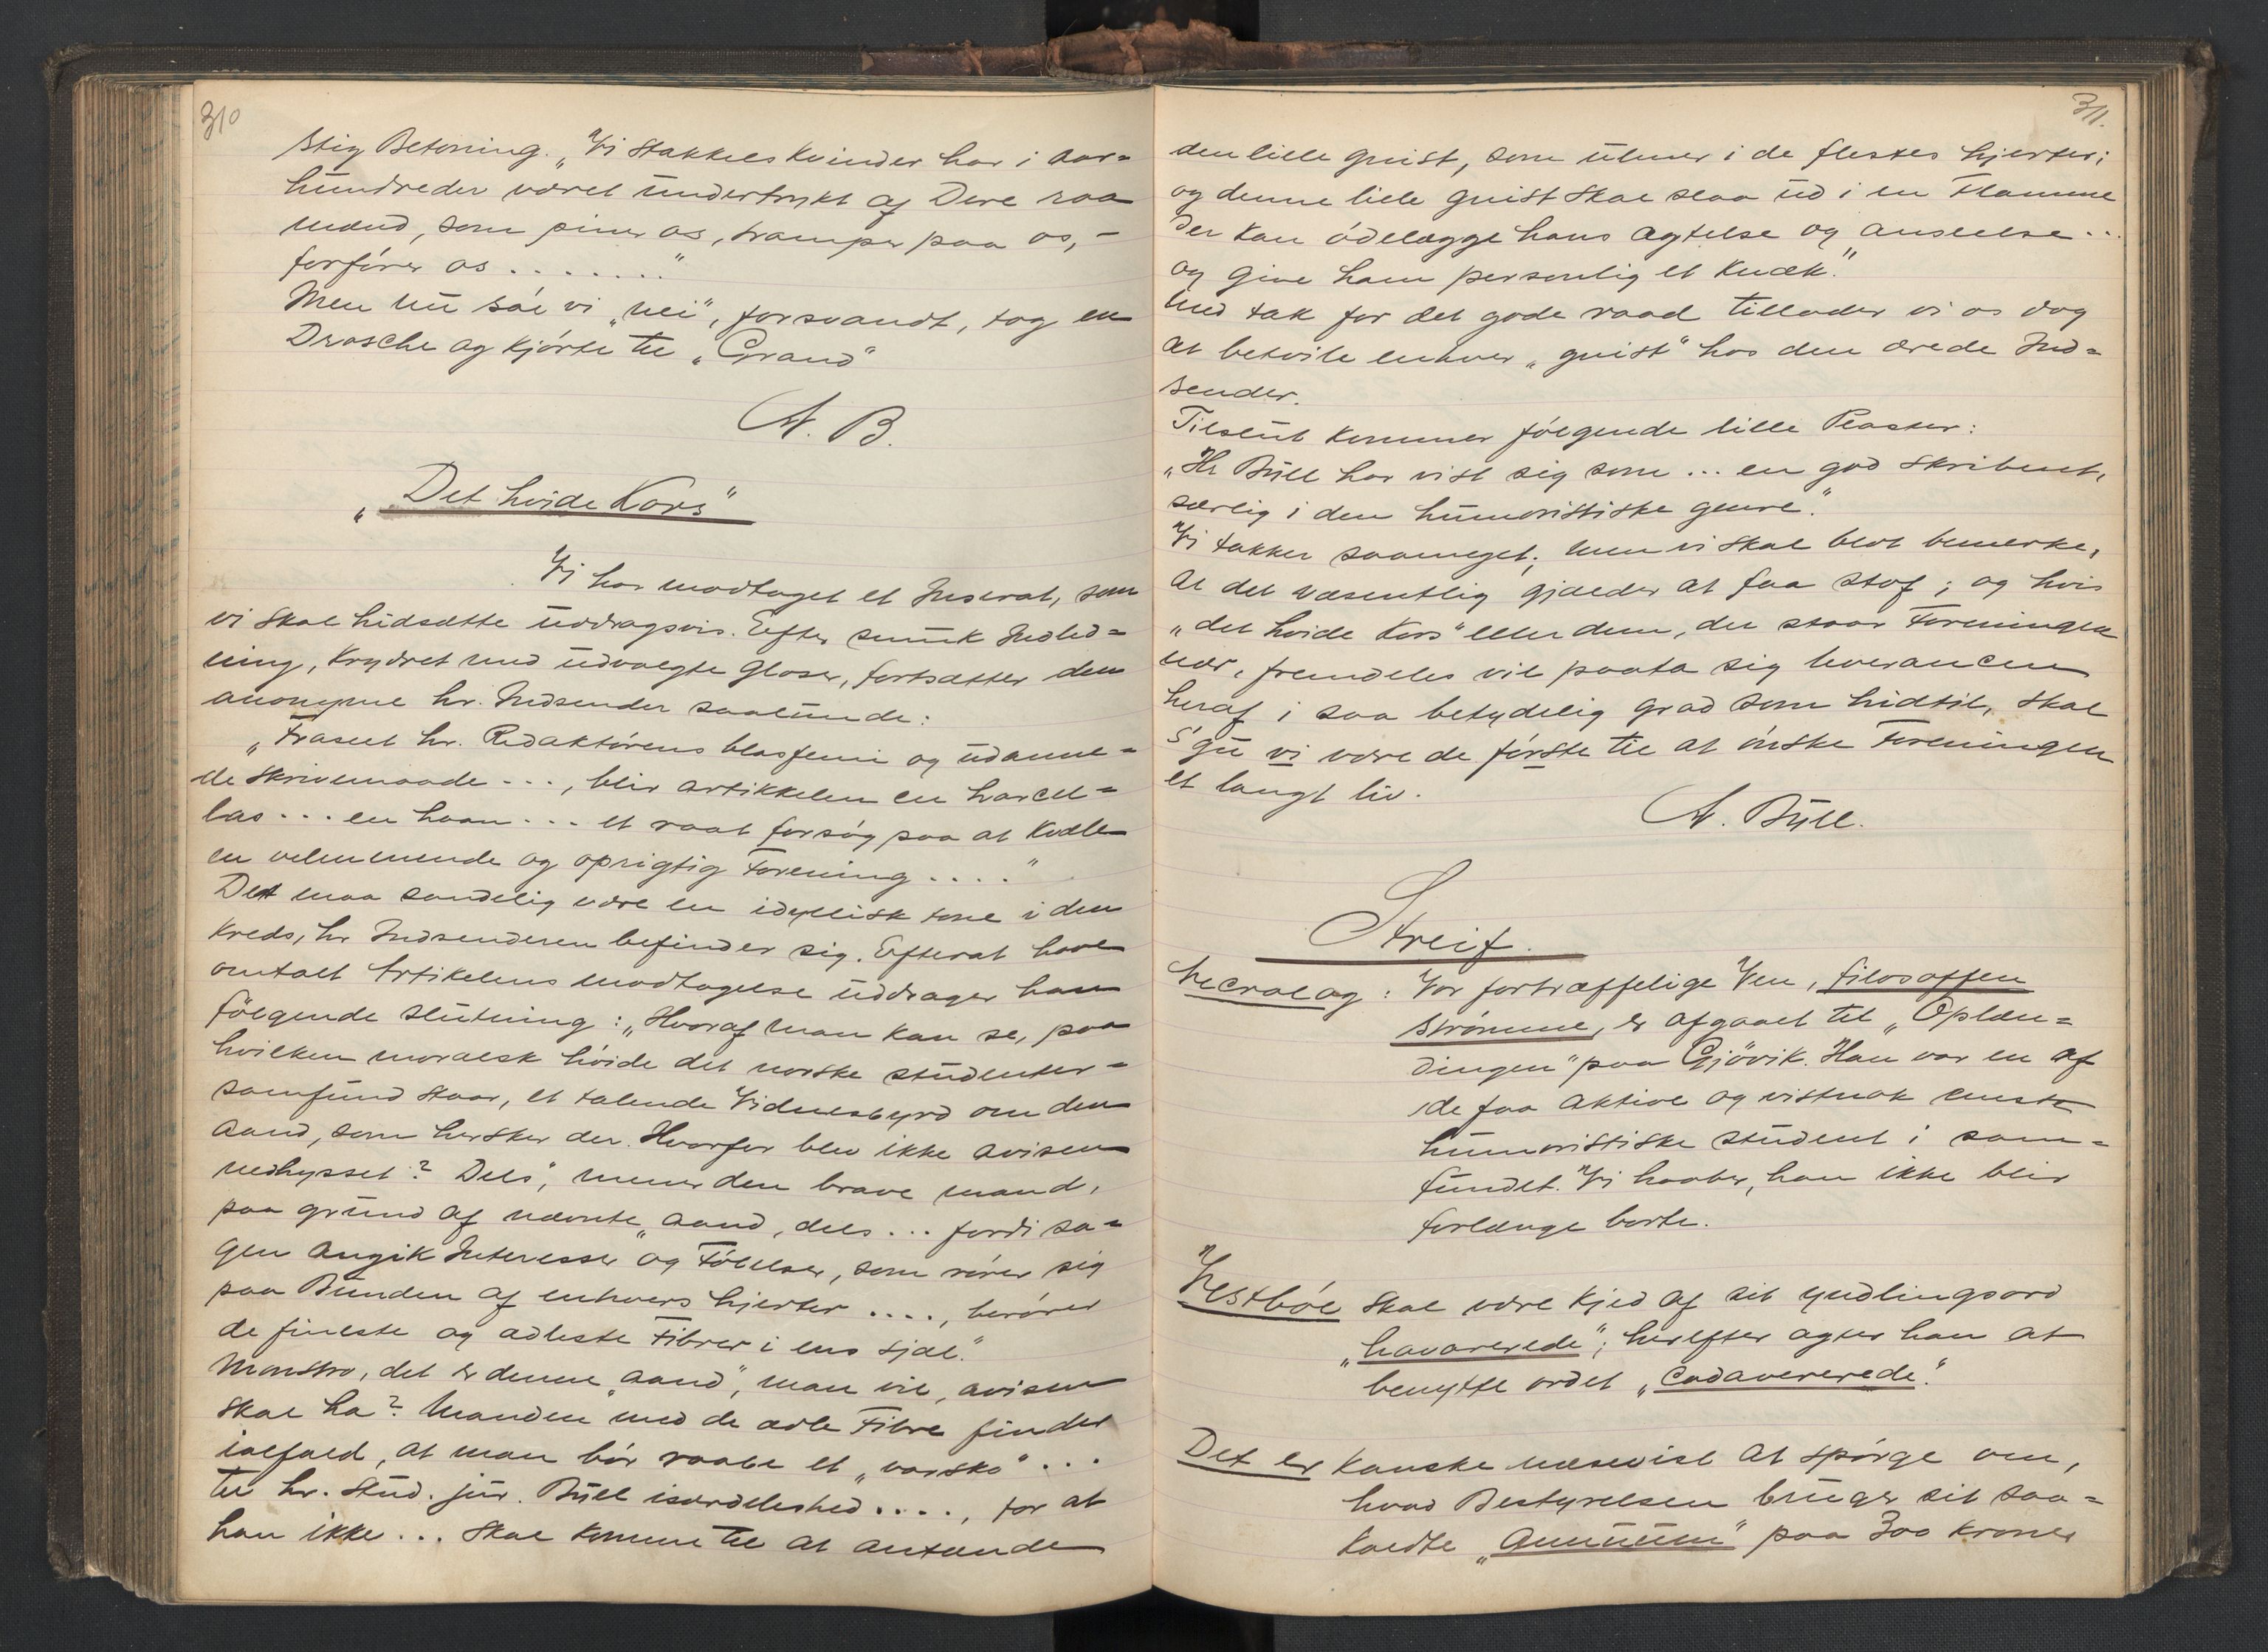 310
stig Betoning. „Vi stakkels Kvinder har i Aar=
hundreder været undertrykt af Dere raa
mænd, som piner os, tramper paa os, –
forfører os . . . . . . . "
Men nu sa'e vi „nei", forsvandt, tog en
Drosche og kjørte til „Grand"
A. B.
„Det hvide Kors"
Vi har modtaget et Inserat, som
vi skal hidsætte uddragsvis. Efter smuk Indled=
ning, krydret med udvalgte Gloser, fortsætter den
anonyme hr. Indsender saalunde:
„Fraseet hr. Redaktørens blasfemi og udanne=
de skrivemaade . . . , blir artikkelen en harcel=
las . . . en haan . . . et raat forsøg paa at kvæle
en velmenende og oprigtig Forening . . . . "
Det maa sandelig være en idyllisk tone i den
Kreds, hr Indsenderen befinder sig. Efterat have
omtalt Artikelens modtagelse uddrager han
følgende slutning: „Hvoraf man kan se, paa
hvilken moralsk høide det norske studenter=
samfund staar, et talende Vidnesbyrd om den
aand, som hersker der. Hvorfor blev ikke avisen
nedhysset? Dels", mener den brave mand,
paa grund af nævnte „aand, dels . . . fordi sa=
gen angik Interesser og Følelser, som rører sig
paa Bunden af enhvers hjerter . . . . , berører
de fineste og ædleste Fibrer i ens sjæl."
Monstro, det er denne „aand", man vil, avisen
skal ha? Manden med de ædle Fibre finder
ialfald, at man bør raabe et „varsko" . . .
til hr. stud. jur. Bull isærdeleshed . . . . , for at
han ikke . . . skal komme til at antænde
311.
den lille gnist, som ulmer i de flestes hjerter;
og denne lille gnist skal slaa ud i en Flamme
der kan ødelægge hans agtelse og anseelse . . .
og give ham personlig et knæk."
Med tak for det gode raad tillader vi os dog
at betvile enhver „gnist" hos den ærede Ind=
sender.
Tilslut kommer følgende lille Plaster:
„Hr Bull har vist sig som . . . en god skribent,
særlig i den humoristiske genre."
Vi takker saameget; men vi skal blot bemerke,
at det væsentlig gjælder at faa stof; og hvis
„det hvide Kors" eller dem, der staar Foreningen
nær, fremdeles vil paata sig leverancen
heraf i saa betydelig grad som hidtil, skal
s'gu vi være de første til at ønske Foreningen
et langt liv.
A. Bull.
Streif.
Necrolog: Vor fortræffelige Ven, filosoffen
Strømme, er afgaaet til „Oplæn=
dingen" paa Gjøvik. Han var en af
de faa aktive og vistnok eneste
humoristiske student i sam=
fundet. Vi haaber, han ikke blir
forlænge borte.
Vestbøe skal være kjed af sit yndlingsord
„havarerede"; herefter agter han at
benytte ordet „cadavererede".
Det er kanske næsevist at spørge om,
hvad Bestyrelsen bruger sit saa=
kaldte „Annuum" paa 300 kroner